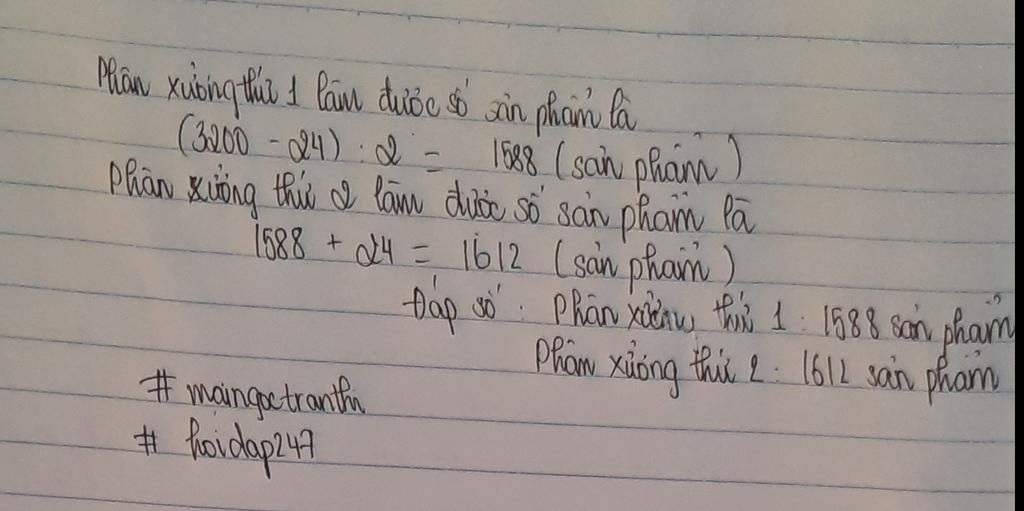 Phân xưởng thứ 1 làm được số sản phẩm là
(3200 - 24) : 2 = 1588 (sản phẩm)
Phân xưởng thứ 2 làm được số sản phẩm là
1588 + 24 = 1612 (sản phẩm)
Đáp số : Phân xưởng thứ 1 : 1588 sản phẩm
Phân xưởng thứ 2 : 1612 sản phẩm
# maingoctranthi
# hoidap247